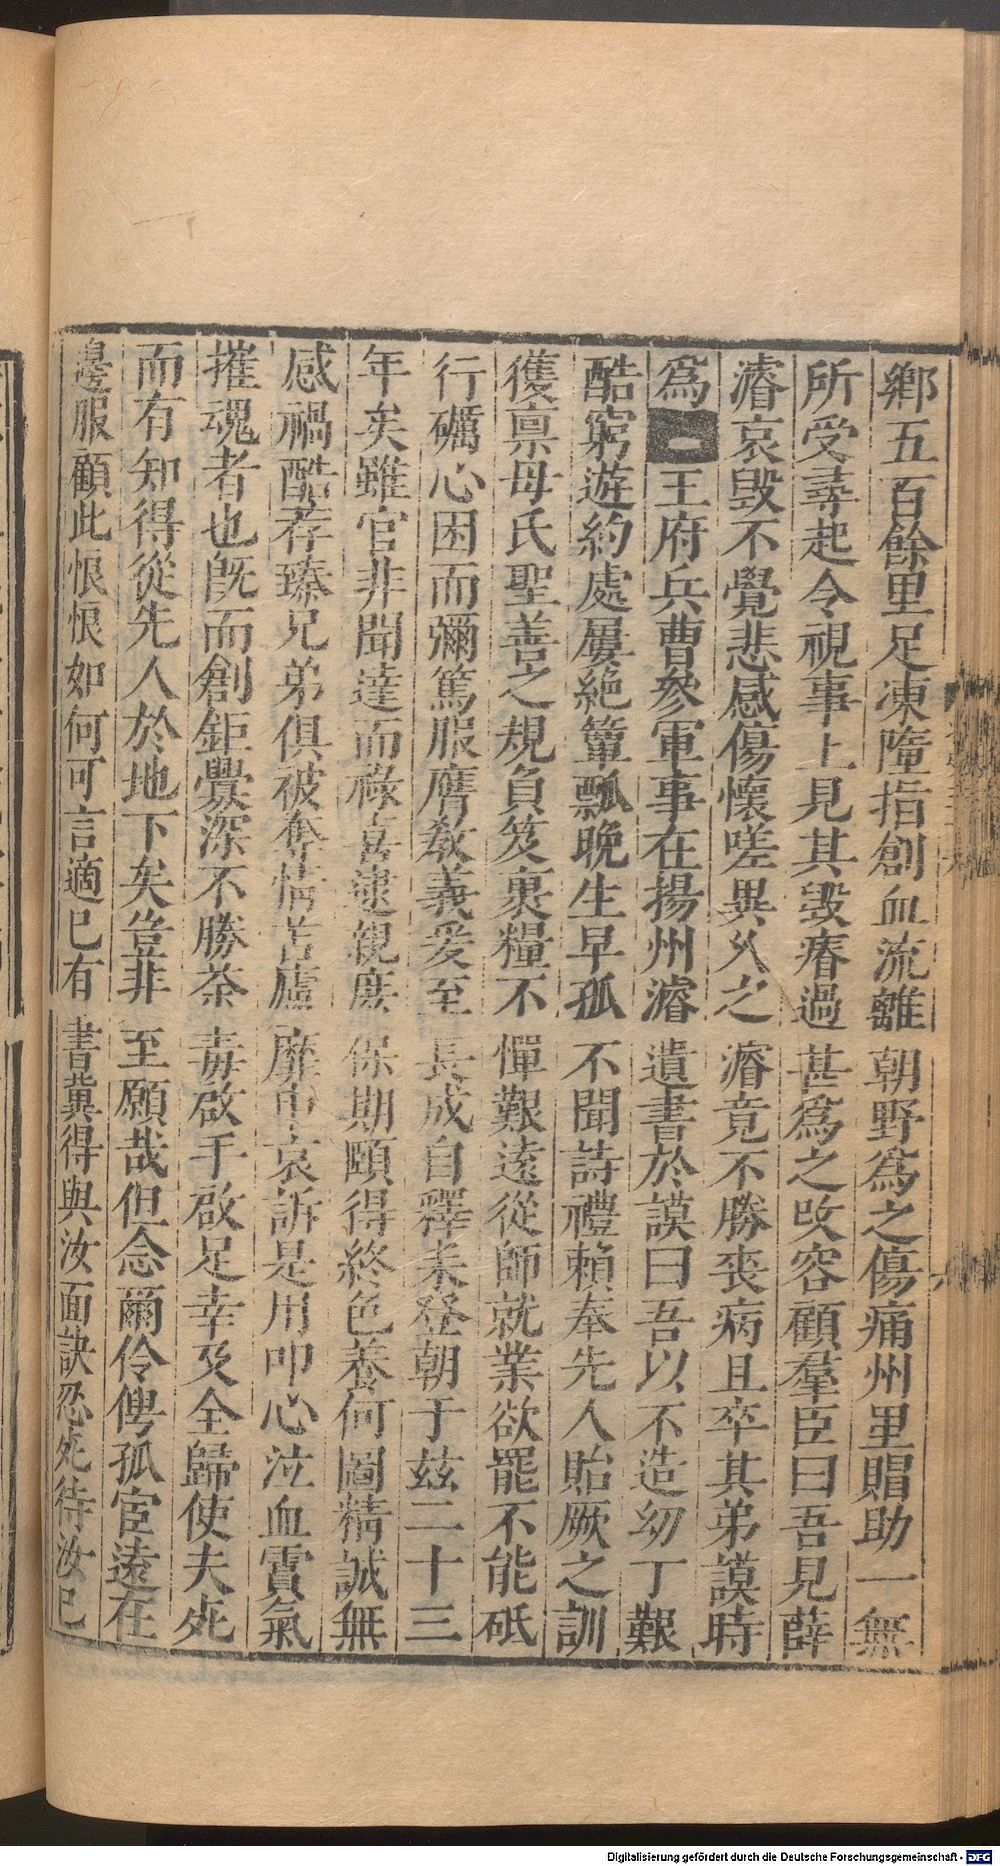 鄉五百餘里足凍隨指創血流離朝野爲之傷痛州里賵助一無
所受尋起令視事上見其毀瘠過甚爲之改容顧羣臣曰吾見薛
濬哀毀不覺悲感傷懷嗟異久之濬竟不勝喪病且卒其弟謨時
爲王府兵曹參軍事在揚州濬遺書於謨曰吾以不造幼丁艱
酷窮遊約處屢絶簞瓢晚生早孤不聞詩禮賴奉先人貽厥之訓
獲禀母氏聖善之規負笈裹糧不憚艱遠從師就業欲罷不能砥
行礪心困而彌篤服膺敎義爰至長成自釋耒登朝于兹二十三
年矣雖官非聞達而祿喜逮親庶保期頤得終色養何圖精誠無
感禍酷荐臻兄弟俱被奪情苫廬靡申哀訴是用叩心泣血霣氣
摧魂者也旣而創鉅釁深不勝荼毒啟手啟足幸及全歸使夫死
而有知得從先人於地下矣豈非至願哉但念爾伶俜孤宦遠在
邊服顧此恨恨如何可言適已有書冀得與汝面訣忍死待汝已
Digitalisierung gefördert durch die Deutsche Forschungsgemeinschaft - DFG